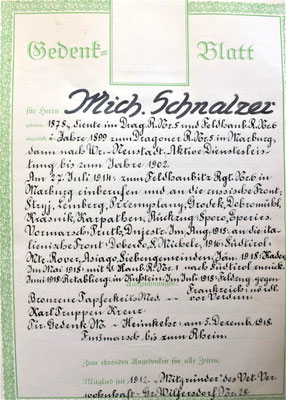 Gedenk-Blatt
für Herrn Mich. Schnalzer
geboren 1878, diente im Drag. R. Nr. 5 und Feldhaub. R. Nr. 6
i. Jahre 1899 zum Dragoner R. Nr. 5 in Marburg,
dann nach Wr.-Neustadt. Aktive Dienstesleis-
tung bis zum Jahre 1902.
Am 27. Juli 1914: zum Feldhaubitz Rgt. Nr. 6 in
Marburg einberufen und an die russische Front:
Stryj, Lemberg, Przemyslany, Grodek, Dobromühl,
Krasnik, Karpathen, Rückzug
Vormarsch: Pruth, Dnjestr. Im Aug. 1915: an die ita-
lienische Front: Doberdo, S. Michele, 1916: Südtirol:
Mte. Rover, Asiago, Siebengemeinden, Jän. 1918:
Im Mai 1918: mit Haub. R. Nr. 1 nach Südtirol zurück.
Juni 1918: Im Juli 1918: Feldzug gegen
Auszeichnungen: Frankreich: nördl.
Bronzene Tapferkeits Med. vor Verdun.
Karl Truppen Kreuz
Tir. Gedenk M. - Heimkehr: am 5. Dezemb. 1918.
Fußmarsch bis zum Rhein.
Zum ehrenden Angedenken für alle Zeiten.
Mitglied seit 1912. "Mitgründer" des Vet. Ver.
Wohnhaft - Gr. Wilfersdorf Nr. 28.